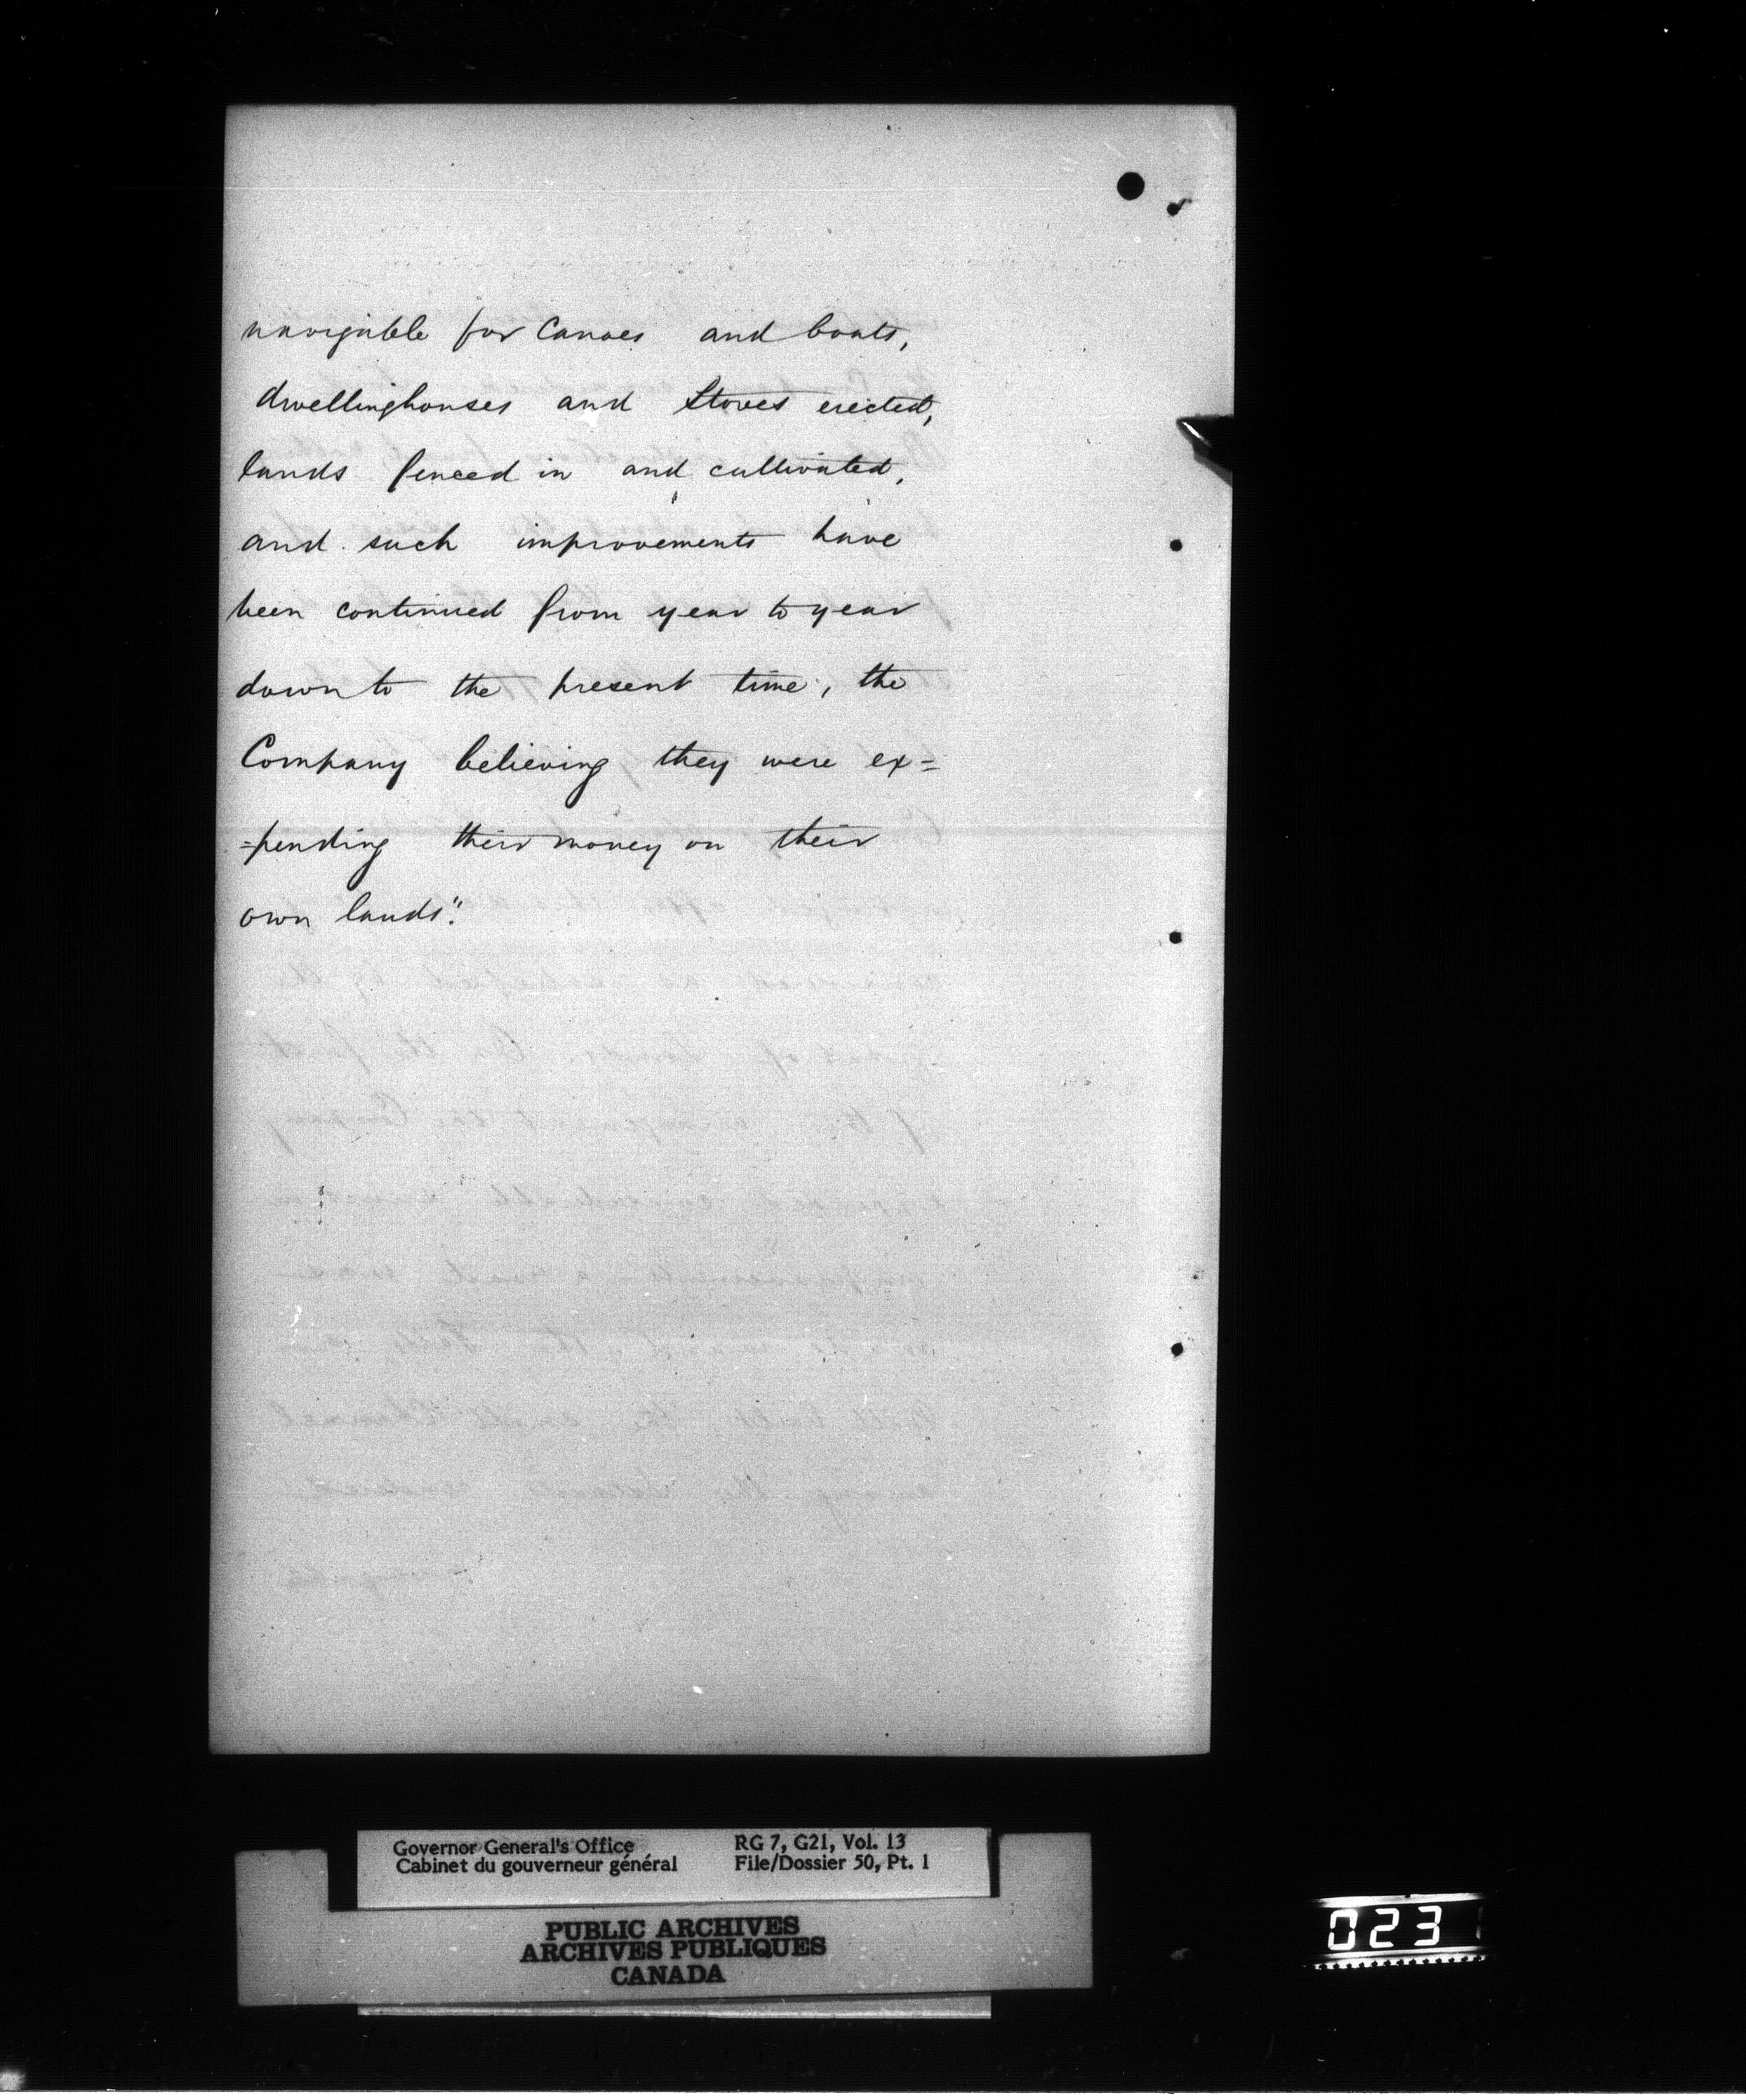 navigable for Canoes and boats,
dwellinghouses and Stores erected,
lands fenced in and cultivated,
and such improvements have
been continued from year to year
down to the present time, the
Company believing they were ex=
=pending their money on their
own lands".
Governor General's Office
Cabinet du gouverneur général
RG 7, G21, Vol. 13
File/Dossier 50, Pt. 1
PUBLIC ARCHIVES
ARCHIVES PUBLIQUES
CANADA
023